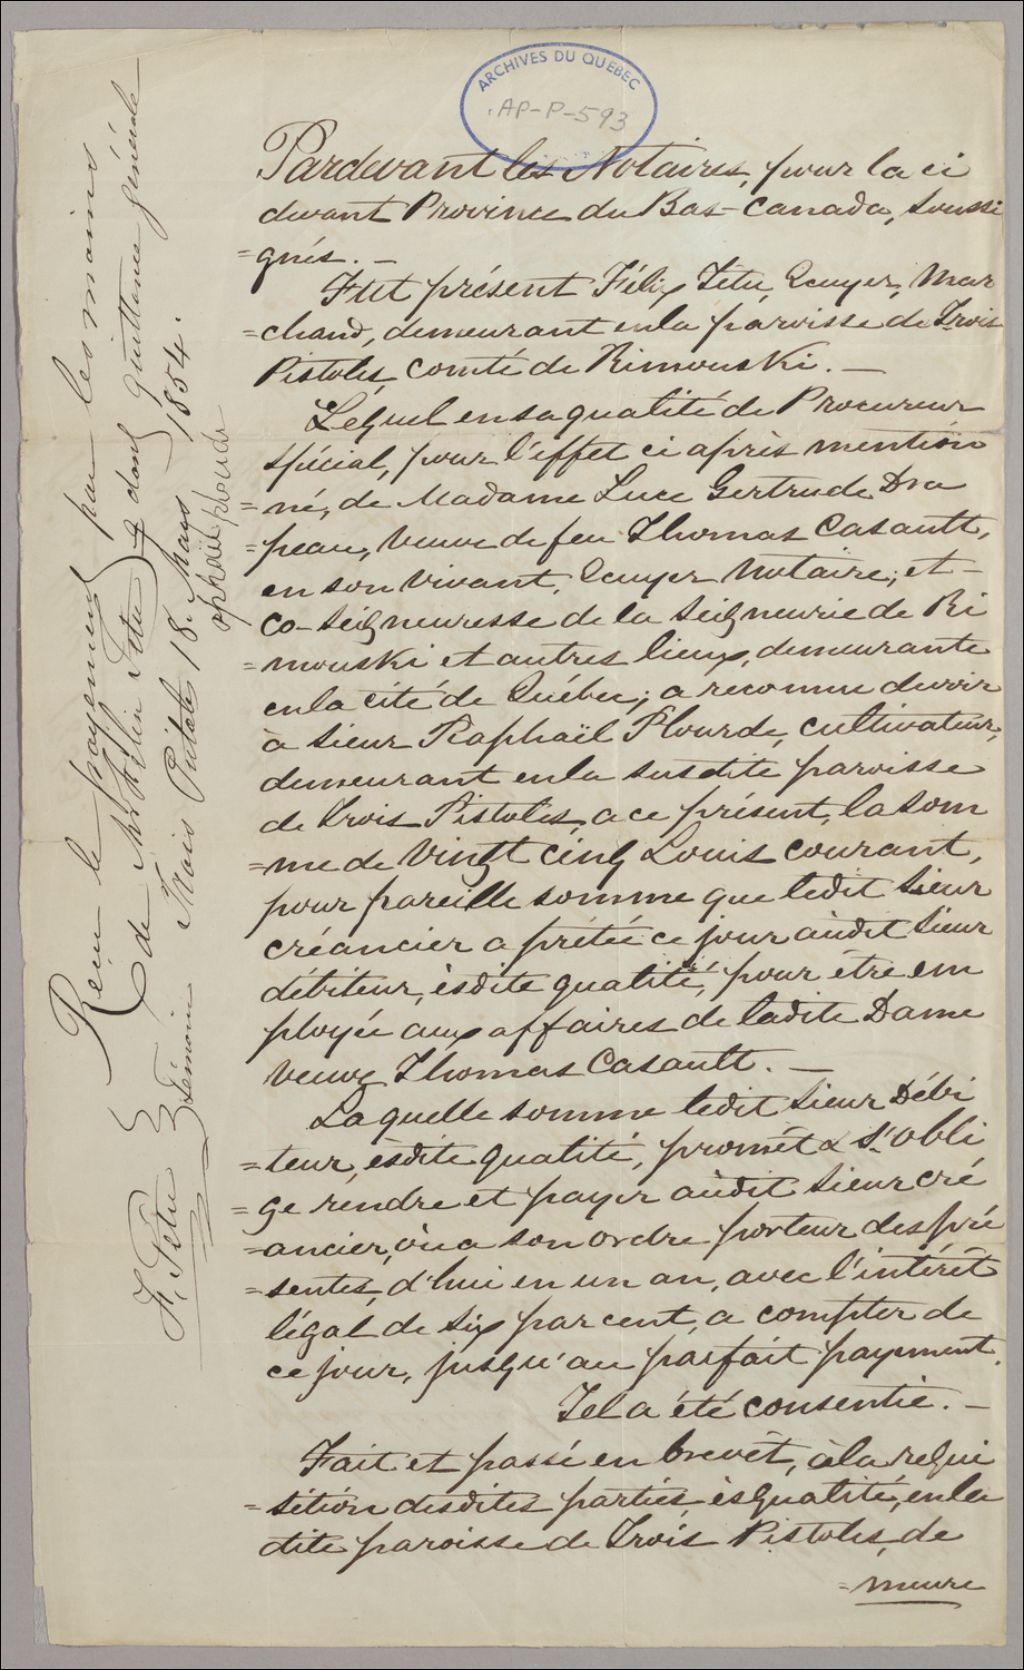 ARCHIVES DU QUEBEC
AP-P-593
Pardevant les Notaires, pour la ci
devant Province du Bas-Canada, soussi
=gnés. —
Fut présent Félix Tetu, Ecuyer, Mar
=chand, demeurant en la paroisse de Trois
Pistoles, comté de Rimouski. —
Lequel en sa qualité de Procureur
spécial, pour l'effet ci après mention
=né, de Madame Luce Gertrude Dra
=peau, veuve de feu Thomas Casault,
en son vivant, Ecuyer Notaire, et —
co-seigneuresse de la Seigneurie de Ri
=mouski et autres lieux, demeurante
en la cité de Québec; a reconnu devoir
à Sieur Raphaël Plourde, cultivateur,
demeurant en la susdite paroisse
de Trois Pistoles, a ce présent, la som
=me de Vingt cinq Louis courant,
pour pareille somme que ledit Sieur
créancier a prêtée ce jour audit Sieur
débiteur, èsdite qualité, pour être em
ployée aux affaires de ladite Dame
veuve Thomas Casault. —
Laquelle somme ledit Sieur Débi
=teur, èsdite qualité, promet & s'obli
=ge rendre et payer audit Sieur cré
=ancier, ou a son ordre porteur des pré
=sentes, d'hui en un an, avec l'intérêt
légal de six par cent, a compter de
ce jour, jusqu'au parfait payement.
Tel a été consentie. —
Fait et passé en brevet, à la requi
=sition desdites parties, èsqualité, en la
dite paroisse de Trois Pistoles, de
=meure
Reçu le payement par les mains
de Mr Félix Tetu & dont quittance générale
Trois Pistole 18. Mars 1854.
Raphaël plourde
F. Têtu } Témoin